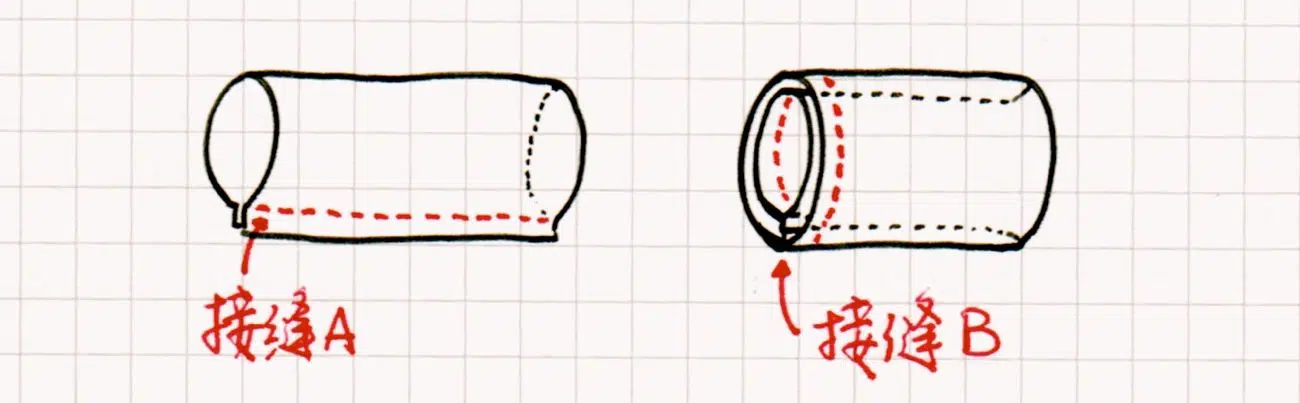 接缝A
接缝B